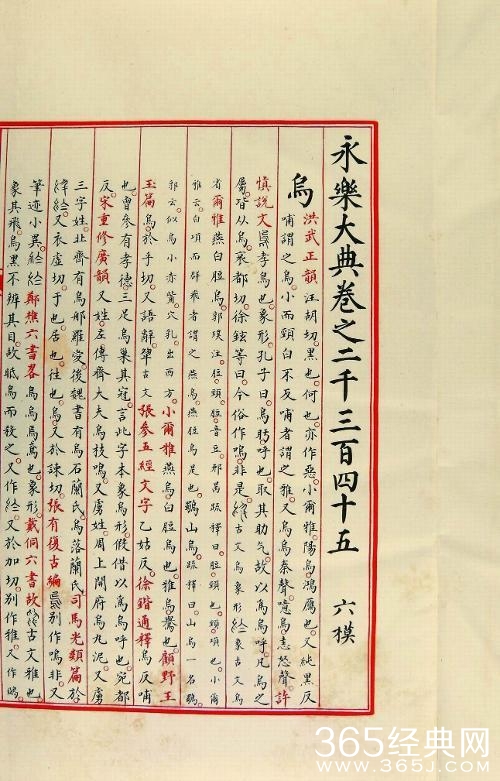 永樂大典卷之二千三百四十五 六模
烏
洪武正韻汪胡切黑也何也亦作惡小爾雅陽烏鴻鴈也又純黑反
哺謂之烏小而頸白不反哺者謂之雅又烏烏秦聲噫烏恚怒聲許
慎說文孝烏也象形孔子曰烏盱呼也取其助气故以爲烏呼凡烏之
屬皆从烏哀都切徐鉉等曰今俗作嗚非是古文烏象形象古文烏
省爾雅燕白脰烏郭璞注
雅云白項而群飛者謂之燕烏燕烏白脰烏也鸒山烏
郭云似烏而小赤觜穴乳出西方小爾雅燕烏白脰烏也雅烏鸒也顧野王
玉篇烏於乎切又語辭古文張參五經文字乙姑反徐鍇通釋烏反哺
也曾參有孝德三足烏巢其冠言此字本象烏形假借以爲烏呼也宛都
反宋重修廣韻又姓左傳齊大夫烏枝鳴又虜姓周上開府烏丸泥又虜
三字姓北齊有烏那羅愛後魏書有烏石蘭氏烏落蘭氏司馬光類篇於
又衣虛切于也居也往也烏又於諫切張有復古編別作嗚非又
筆迹小異鄭樵六書畧烏烏也象形戴侗六書故古文雅也
象其飛烏黑不辨其目故眂烏而殺之又作又於加切別作雅又作鴉
365经典网
www.365J.com